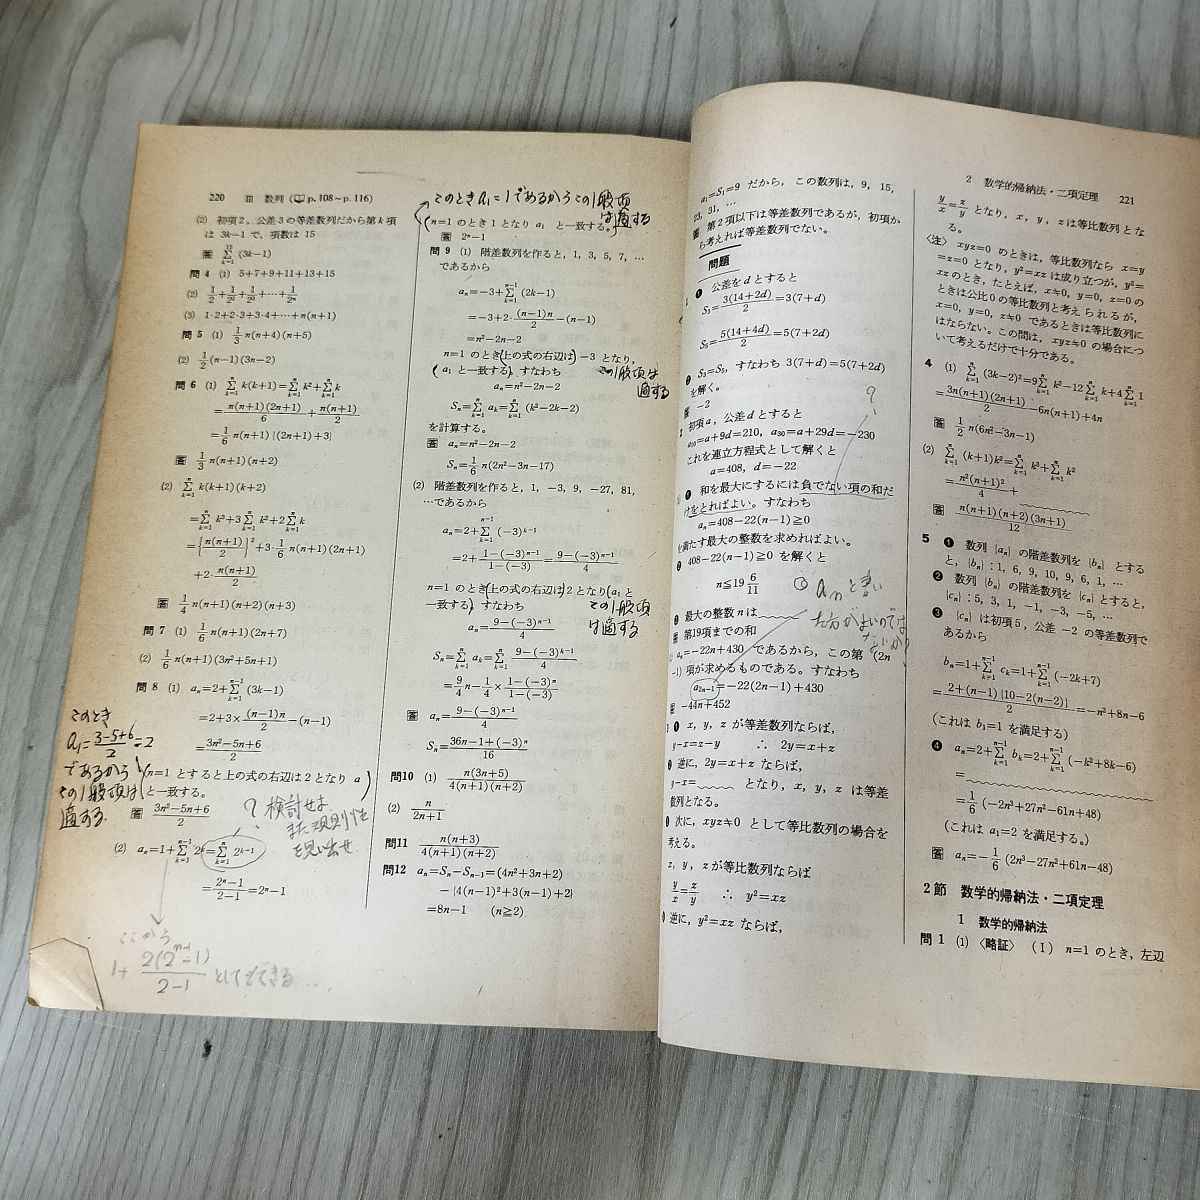 220 Ⅲ 数列 (p.108～p.116)
(2) 初項2, 公差3の等差数列だから第k項
は 3k−1 で, 項数は 15
答 Σ_{k=1}^{15} (3k−1)
問4 (1) 5+7+9+11+13+15
(2) 1/2+1/2²+1/2³+⋯+1/2ⁿ
(3) 1·2+2·3+3·4+⋯+n(n+1)
問5 (1) 1/3 n(n+4)(n+5)
(2) 1/2 (n−1)(3n−2)
問6 (1) Σ_{k=1}^{n} k(k+1)=Σ_{k=1}^{n} k²+Σ_{k=1}^{n} k
=n(n+1)(2n+1)/6+n(n+1)/2
=1/6 n(n+1){(2n+1)+3}
答 1/3 n(n+1)(n+2)
(2) Σ_{k=1}^{n} k(k+1)(k+2)
=Σ_{k=1}^{n} k³+3Σ_{k=1}^{n} k²+2Σ_{k=1}^{n} k
={n(n+1)/2}²+3·1/6 n(n+1)(2n+1)
+2·n(n+1)/2
答 1/4 n(n+1)(n+2)(n+3)
問7 (1) 1/6 n(n+1)(2n+7)
(2) 1/6 n(n+1)(3n²+5n+1)
問8 (1) aₙ=2+Σ_{k=1}^{n−1} (3k−1)
=2+3×(n−1)n/2−(n−1)
=(3n²−5n+6)/2
このとき
a₁=(3−5+6)/2=2
であるから
この一般項は
適する.
(n=1 とすると上の式の右辺は 2 となり a
と一致する.)
答 (3n²−5n+6)/2
? 検討せよ
また規則性
を思い出せ
(2) aₙ=1+Σ_{k=1}^{n−1} 2ᵏ=Σ_{k=1}^{n} 2^{k−1}
=(2ⁿ−1)/(2−1)=2ⁿ−1
ここから
1+2(2^{n−1}−1)/(2−1) としてもできる…
このとき a₁=1であるからこの一般項
は適する
(n=1 のとき 1 となり a₁ と一致する.)
答 2ⁿ−1
問9 (1) 階差数列を作ると, 1, 3, 5, 7, …
であるから
aₙ=−3+Σ_{k=1}^{n−1} (2k−1)
=−3+2·(n−1)n/2−(n−1)
=n²−2n−2
n=1 のとき(上の式の右辺は)−3 となり,
(a₁ と一致する)すなわち この一般項は
適する
aₙ=n²−2n−2
Sₙ=Σ_{k=1}^{n} aₖ=Σ_{k=1}^{n} (k²−2k−2)
を計算する.
答 aₙ=n²−2n−2
Sₙ=1/6 n(2n²−3n−17)
(2) 階差数列を作ると, 1, −3, 9, −27, 81,
…であるから
aₙ=2+Σ_{k=1}^{n−1} (−3)^{k−1}
=2+{1−(−3)^{n−1}}/{1−(−3)}={9−(−3)^{n−1}}/4
n=1 のとき(上の式の右辺は)2 となり(a₁ と
一致する)すなわち この一般項
は適する
aₙ={9−(−3)^{n−1}}/4
Sₙ=Σ_{k=1}^{n} aₖ=Σ_{k=1}^{n} {9−(−3)^{k−1}}/4
=9/4 n−1/4×{1−(−3)ⁿ}/{1−(−3)}
答 aₙ={9−(−3)^{n−1}}/4
Sₙ={36n−1+(−3)ⁿ}/16
問10 (1) n(3n+5)/4(n+1)(n+2)
(2) n/(2n+1)
問11 n(n+3)/4(n+1)(n+2)
問12 aₙ=Sₙ−Sₙ₋₁=(4n²+3n+2)
−{4(n−1)²+3(n−1)+2}
=8n−1 (n≧2)
2 数学的帰納法・二項定理 221
a₁=S₁=9 だから, この数列は, 9, 15,
23, 31, …
答 第2項以下は等差数列であるが, 初項か
ら考えれば等差数列でない.
問題
1 ❶ 公差を d とすると
S₃=3(14+2d)/2=3(7+d)
S₅=5(14+4d)/2=5(7+2d)
❷ S₃=S₅, すなわち 3(7+d)=5(7+2d)
を解く.
答 −2
初項 a, 公差 d とすると
a₁₀=a+9d=210, a₃₀=a+29d=−230
これを連立方程式として解くと
a=408, d=−22
❶ 和を最大にするには負でない項の和だ
けをとればよい. すなわち
aₙ=408−22(n−1)≧0
を満たす最大の整数を求めればよい.
❷ 408−22(n−1)≧0 を解くと
n≦19 6/11
?
aₙ と書い
た方がよいのでは
ないか?
❸ 最大の整数 n は
答 第19項までの和
aₙ=−22n+430 であるから, この第 (2n
−1) 項が求めるものである. すなわち
a₂ₙ₋₁=−22(2n−1)+430
答 −44n+452
3 ❶ x, y, z が等差数列ならば,
y−x=z−y ∴ 2y=x+z
❷ 逆に, 2y=x+z ならば,
y−x= となり, x, y, z は等差
数列となる.
次に, xyz≠0 として等比数列の場合を
考える.
x, y, z が等比数列ならば
y/x=z/y ∴ y²=xz
逆に, y²=xz ならば,
y/x=z/y となり, x, y, z は等比数列とな
る.
〈注〉 xyz=0 のときは, 等比数列なら x=y
=z=0 となり, y²=xz は成り立つが, y²=
xz のとき, たとえば, x≠0, y=0, z=0 の
ときは公比0の等比数列と考えられるが,
x=0, y=0, z≠0 であるときは等比数列に
はならない. この問は, xyz≠0 の場合につ
いて考えるだけで十分である.
4 (1) Σ_{k=1}^{n} (3k−2)²=9Σ_{k=1}^{n} k²−12Σ_{k=1}^{n} k+4Σ_{k=1}^{n} 1
=3n(n+1)(2n+1)/2−6n(n+1)+4n
答 1/2 n(6n²−3n−1)
(2) Σ_{k=1}^{n} (k+1)k²=Σ_{k=1}^{n} k³+Σ_{k=1}^{n} k²
=n²(n+1)²/4+
答 n(n+1)(n+2)(3n+1)/12
5 ❶ 数列 {aₙ} の階差数列を {bₙ} とする
と, {bₙ} : 1, 6, 9, 10, 9, 6, 1, …
❷ 数列 {bₙ} の階差数列を {cₙ} とすると,
{cₙ} : 5, 3, 1, −1, −3, −5, …
❸ {cₙ} は初項5, 公差 −2 の等差数列で
あるから
bₙ=1+Σ_{k=1}^{n−1} cₖ=1+Σ_{k=1}^{n−1} (−2k+7)
=2+(n−1){10−2(n−2)}/2=−n²+8n−6
(これは b₁=1 を満足する)
❹ aₙ=2+Σ_{k=1}^{n−1} bₖ=2+Σ_{k=1}^{n−1} (−k²+8k−6)
=
=1/6 (−2n³+27n²−61n+48)
(これは a₁=2 を満足する.)
答 aₙ=−1/6 (2n³−27n²+61n−48)
2節 数学的帰納法・二項定理
1 数学的帰納法
問1 (1) 〈略証〉 (Ⅰ) n=1 のとき, 左辺